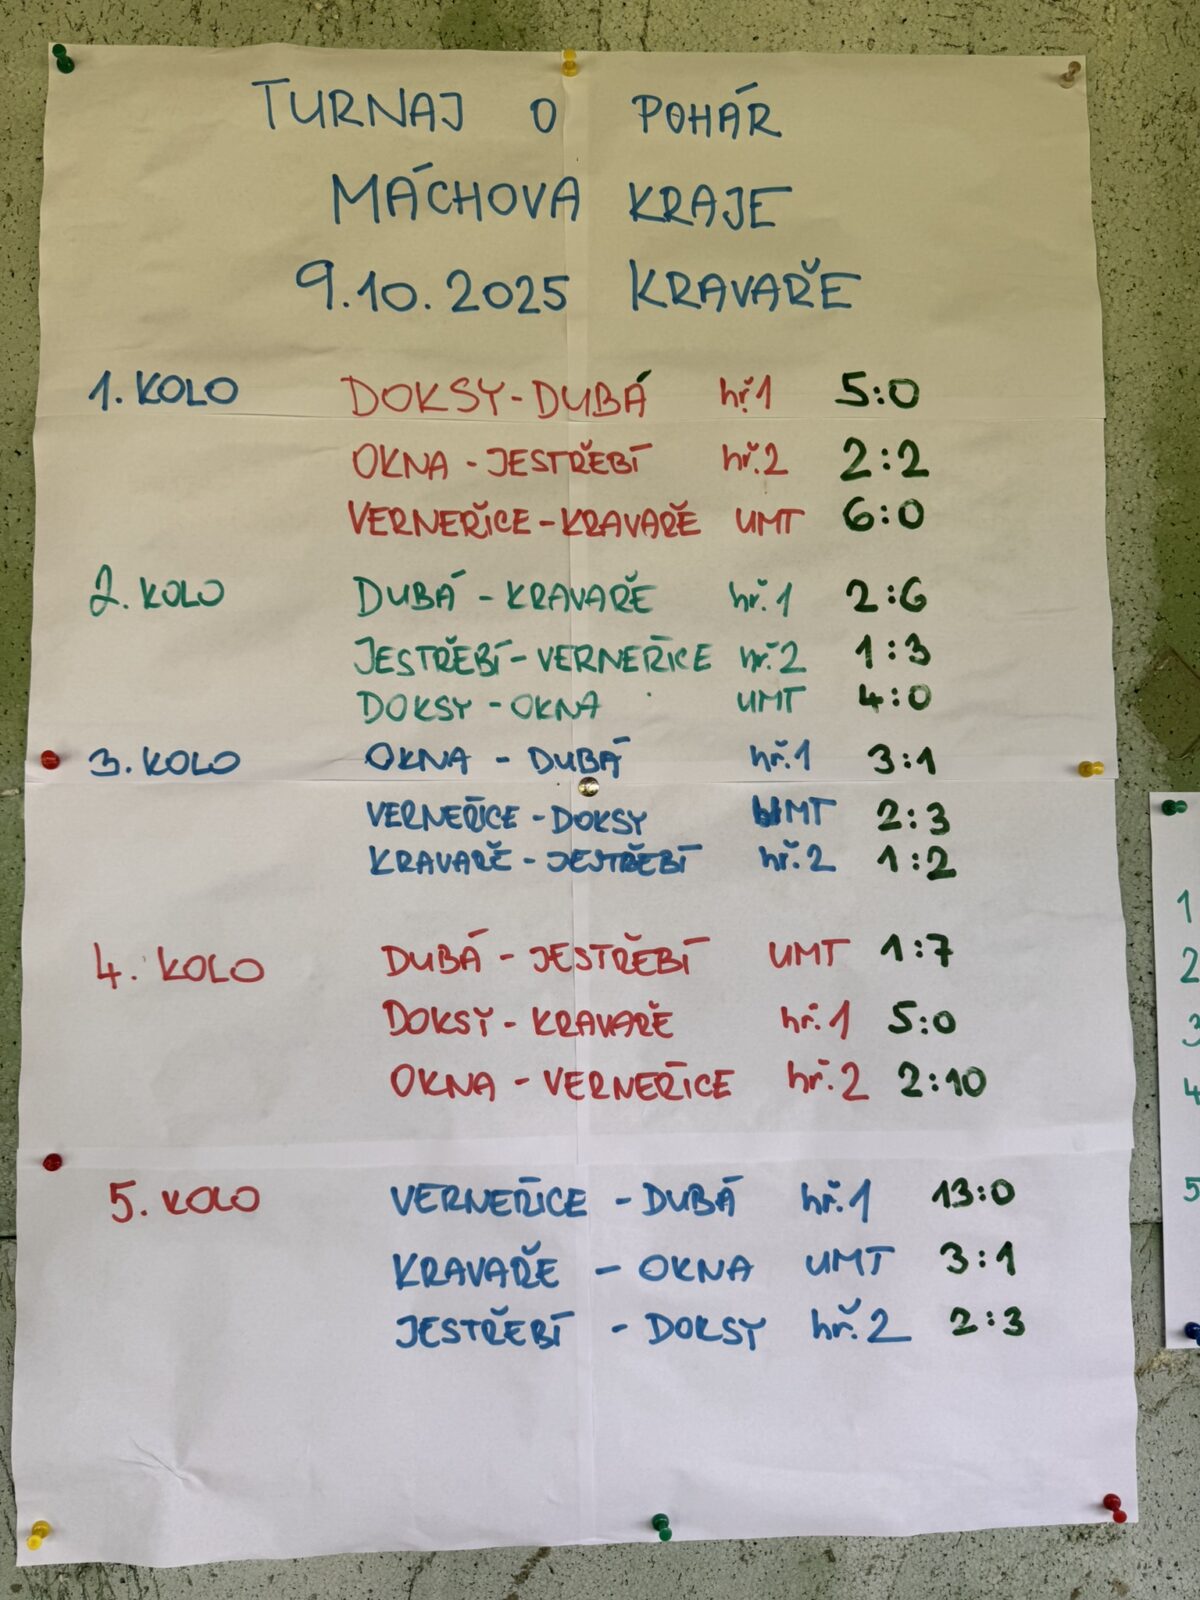 TURNAJ O POHÁR
MÁCHOVA KRAJE
9.10.2025 KRAVAŘE
1. KOLO DOKSY-DUBÁ hř.1 5:0
OKNA - JESTŘEBÍ hř.2 2:2
VERNEŘICE-KRAVAŘE UMT 6:0
2. KOLO DUBÁ - KRAVAŘE hř.1 2:6
JESTŘEBÍ-VERNEŘICE hř.2 1:3
DOKSY - OKNA UMT 4:0
3. KOLO OKNA - DUBÁ hř.1 3:1
VERNEŘICE - DOKSY UMT 2:3
KRAVAŘE - JESTŘEBÍ hř.2 1:2
4. KOLO DUBÁ - JESTŘEBÍ UMT 1:7
DOKSY - KRAVAŘE hř.1 5:0
OKNA - VERNEŘICE hř.2 2:10
5. KOLO VERNEŘICE - DUBÁ hř.1 13:0
KRAVAŘE - OKNA UMT 3:1
JESTŘEBÍ - DOKSY hř.2 2:3
1
2
3
4
5